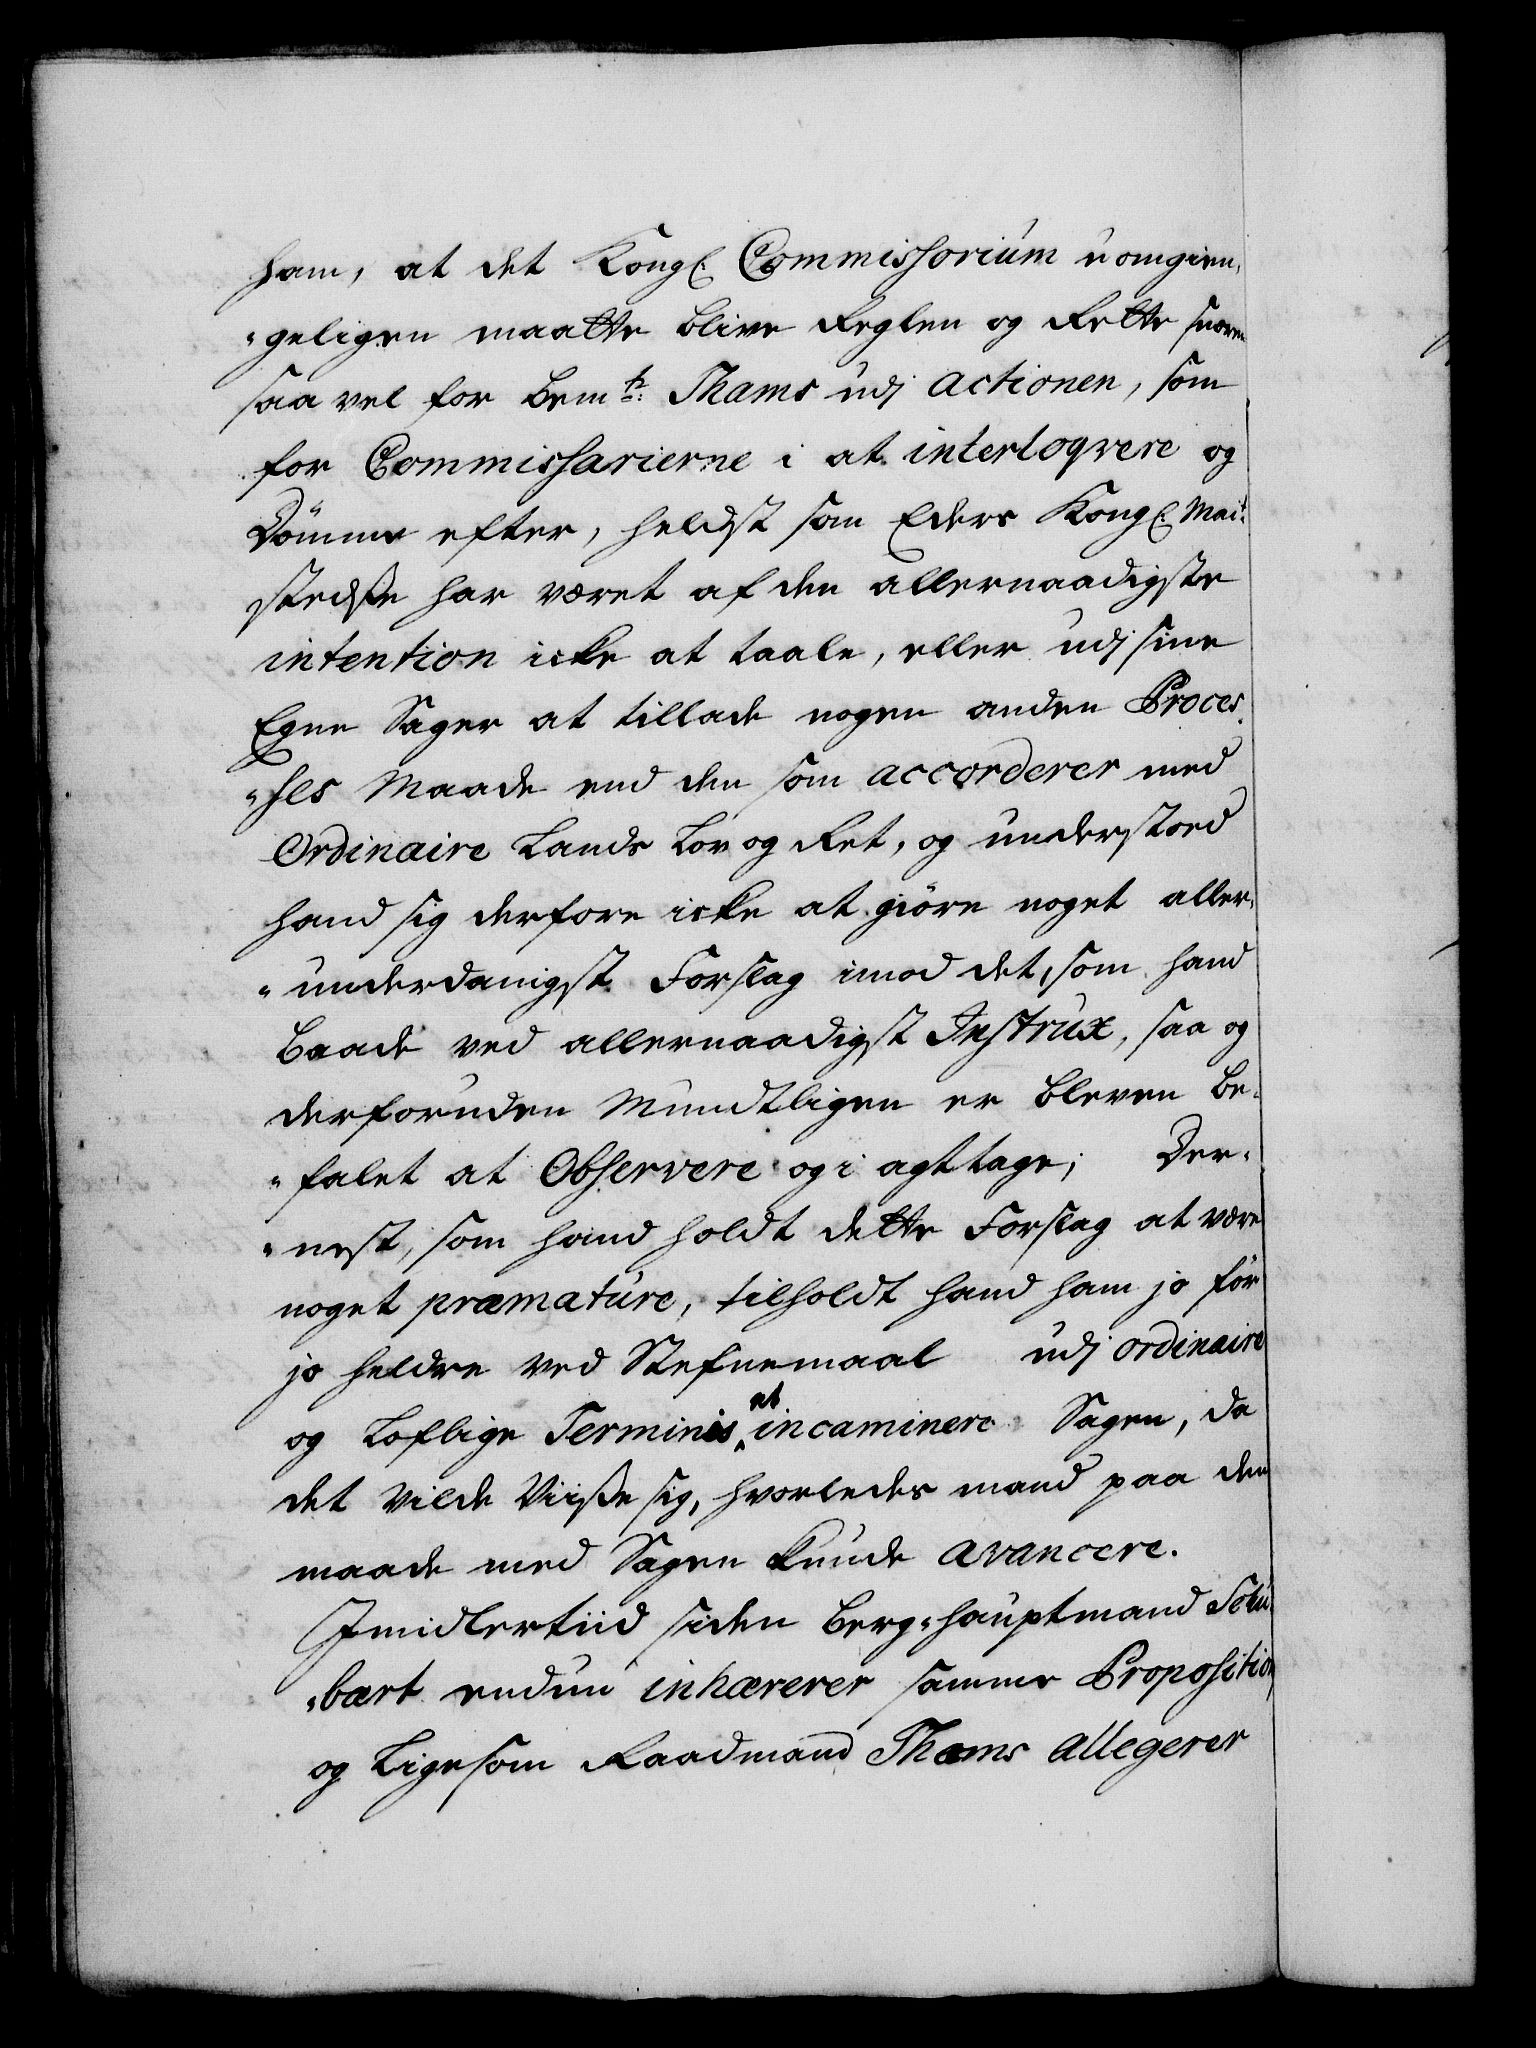 ham, at det Kongl: Commissorium uomgien¬
¬geligen maatte blive Reglen og Rette snoren
saa vel for bem:te Thams udj Actionen, som
for Commissarierne i at interloqvere og
Dömme efter, heldst som Eders Kongl: Mait:
stedsse har været af den allernaadigste
intention icke at taale, eller udj sine
Egne Sager at tillade nogen anden Proces¬
¬ses Maade end den som accorderer med
Ordinaire Lands Lov og Ret, og understoed
hand sig derfore icke at giöre noget aller¬
¬underdanigst Forslag imod det, som hand
baade ved allernaadigst Instrux, saa og
derforuden Mundtligen er bleven be¬
¬falet at Observere og i agttage; Der¬
¬nest, som hand holdt dette Forslag at være
noget præmature, tilholdt hand ham jo för
jo heldre ved Stefnemaal udj ordinaire
og Loflige Terminis at incaminere Sagen, da
det vilde Viisse sig, hvorledes mand paa den
maade med Sagen kunde avancere.
Imidlertiid siden Berg-Hauptmand Schu¬
¬bart endnu inhærerer samme Proposition,
og Ligesom Raadmand Thams allegerer